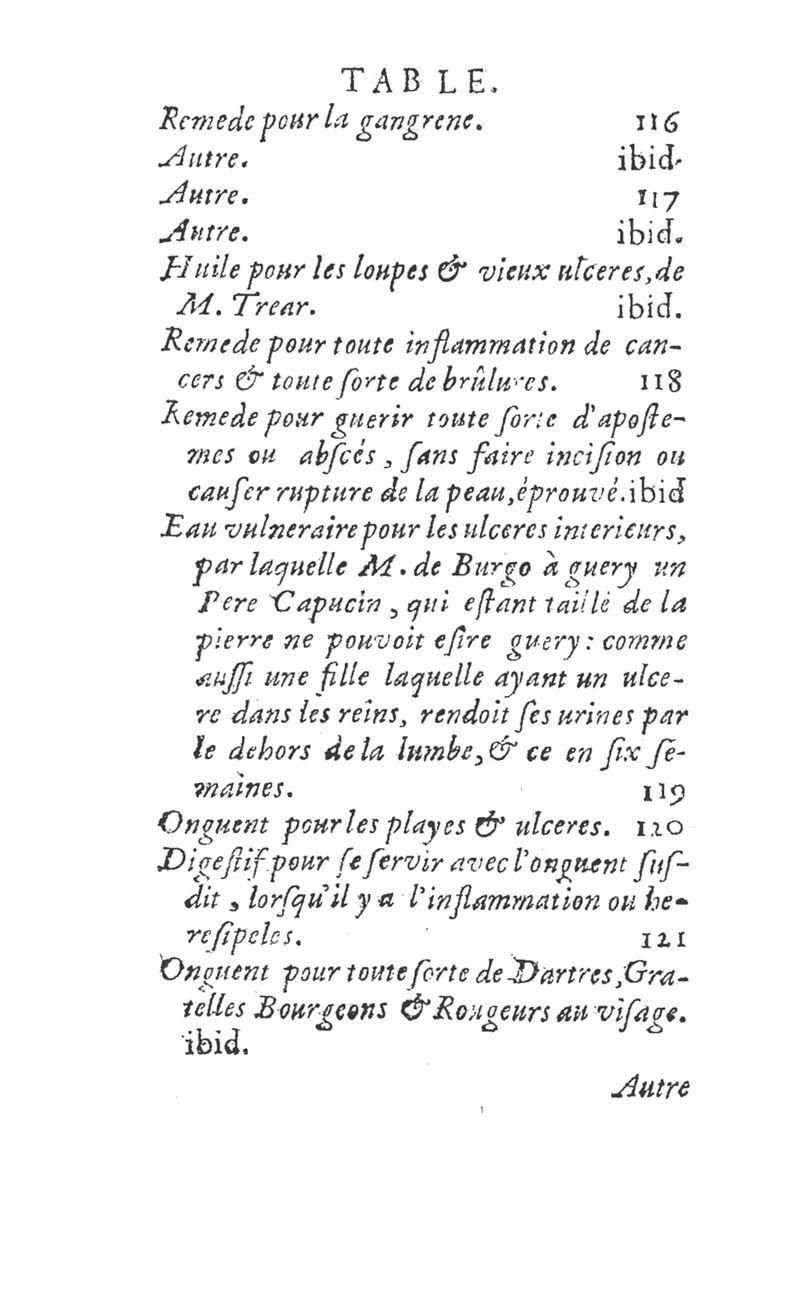 TABLE.
Remede pour la gangrene. 116
Autre. ibid.
Autre. 117
Autre. ibid.
Huile pour les loupes & vieux ulceres, de
M. Trear. ibid.
Remede pour toute inflammation de can-
cers & toute ſorte de brûlures. 118
Remede pour guerir toute ſorte d'apoſte-
mes ou abſcés, ſans faire inciſion ou
cauſer rupture de la peau, éprouvé. ibid
Eau vulneraire pour les ulceres interieurs,
par laquelle M. de Burgo à guery un
Pere Capucin, qui eſtant taillé de la
pierre ne pouvoit eſtre guery : comme
auſſi une fille laquelle ayant un ulce-
re dans les reins, rendoit ſes urines par
le dehors de la lumbe, & ce en ſix ſe-
maines. 119
Onguent pour les playes & ulceres. 120
Digeſtif pour ſe ſervir avec l'onguent ſuſ-
dit, lorſqu'il y a l'inflammation ou he-
reſipeles. 121
Onguent pour toute ſorte de Dartres, Gra-
telles Bourgeons & Rougeurs au viſage.
ibid.
Autre